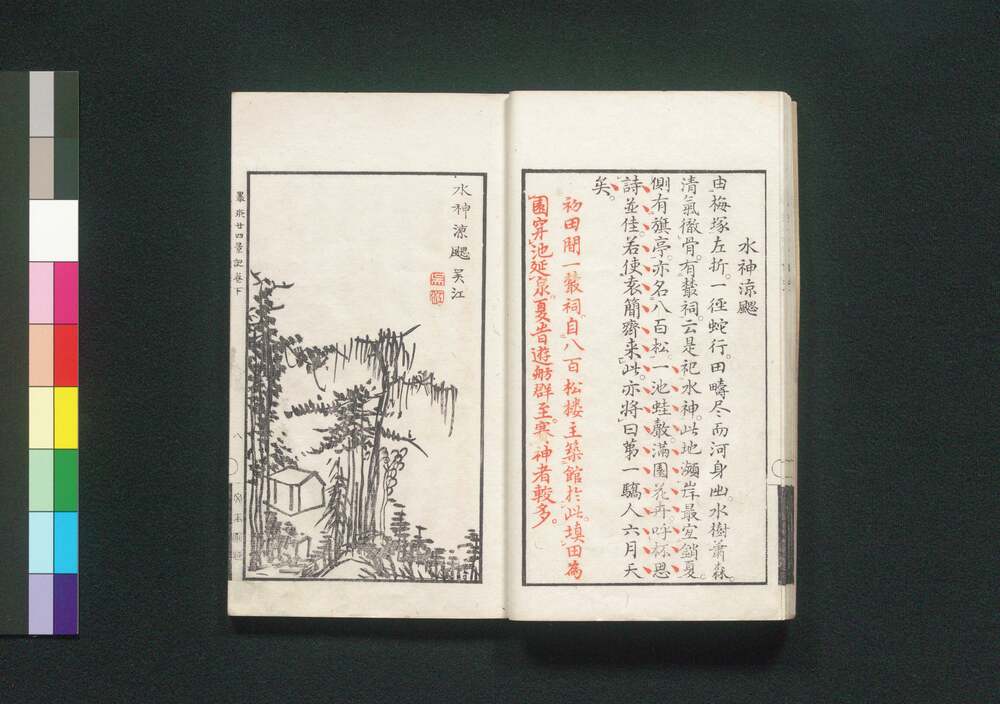 水神涼颸
由梅塚左折。一徑蛇行。田疇尽而河身出。水樹蕭森。
清氣徹骨。有叢祠。云是祀水神。此地瀕岸最宜銷夏。
側有旗亭。亦名八百松。一池蛙鼓。滿園花卉。呼杯思
詩並佳。若使袁簡齋来此。亦将曰第一驕人六月天
矣。
初田間一叢祠。自八百松楼主築館於此。填田為
園。穿池延泉。夏昔遊舫群至。寒神者較多。
水神涼颸 吴江
墨水廿四景記卷下
八